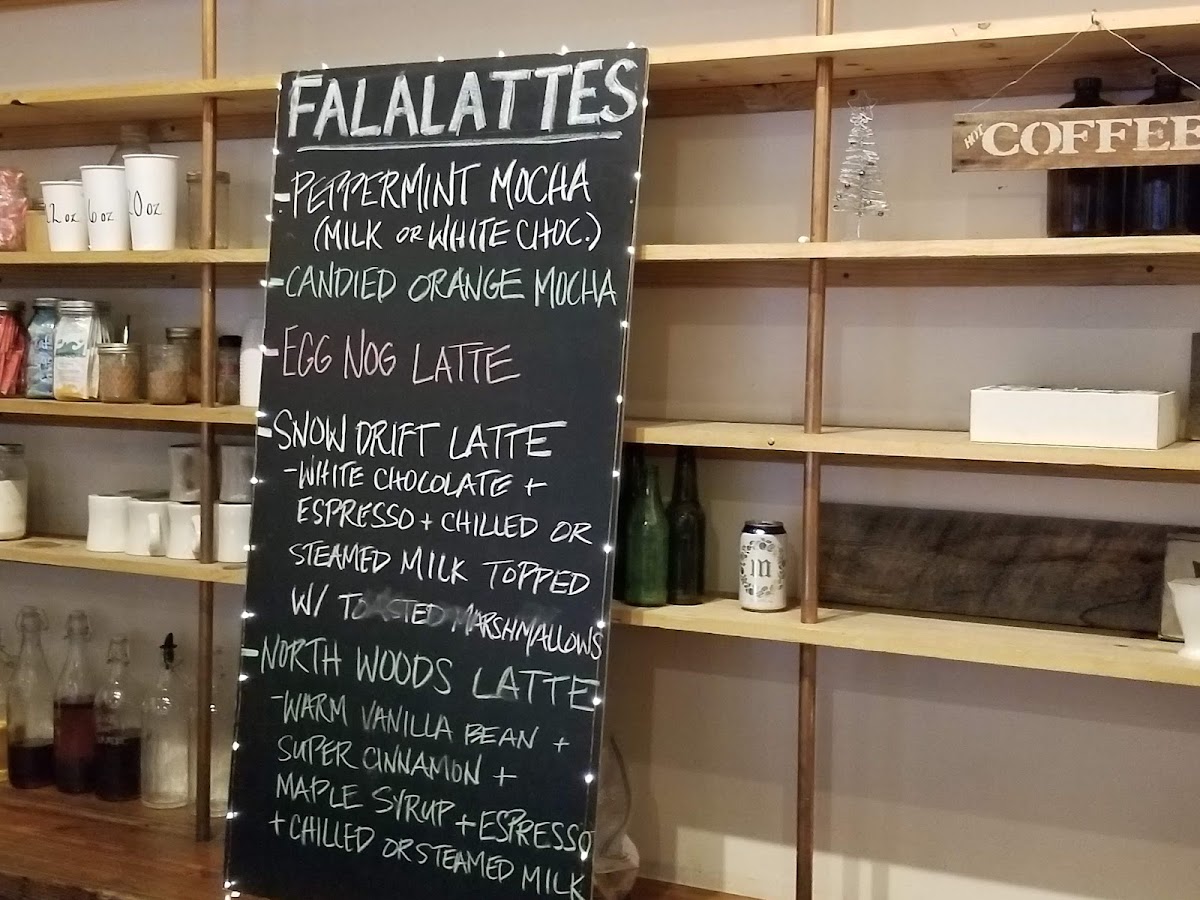 FALALATTES
-PEPPERMINT MOCHA
(MILK OR WHITE CHOC.)
-CANDIED ORANGE MOCHA
-EGG NOG LATTE
-SNOW DRIFT LATTE
-WHITE CHOCOLATE +
ESPRESSO + CHILLED OR
STEAMED MILK TOPPED
W/ TOASTED MARSHMALLOWS
-NORTH WOODS LATTE
-WARM VANILLA BEAN +
SUPER CINNAMON +
MAPLE SYRUP + ESPRESSO
+ CHILLED OR STEAMED MILK
HOT COFFEE
12 oz
6 oz
0 oz